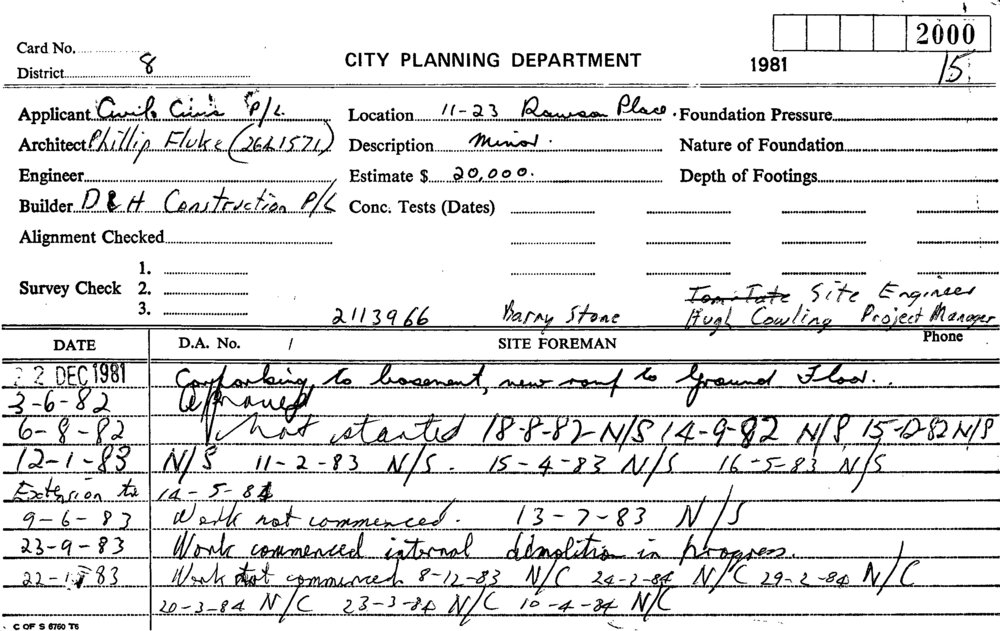 2000
Card No.
CITY PLANNING DEPARTMENT 1981 15
District 8
Applicant Civil & Civic P/L. Location 11-23 Rawson Place. Foundation Pressure
Architect Phillip Fluke (2641571) Description Minor. Nature of Foundation
Engineer Estimate $ 20,000. Depth of Footings
Builder D & H Construction P/L Conc. Tests (Dates)
Alignment Checked
1.
Survey Check 2.
3.
Tom Tate Site Engineer
2113966 Barry Stone Hugh Cowling Project Manager
DATE D.A. No. / SITE FOREMAN Phone
22 DEC 1981 Carparking to basement, new ramp to Ground Floor.
3-6-82 Approved
6-8-82 Not started 18-8-82-N/S 14-9-82 N/S 15-12-82 N/S
12-1-83 N/S 11-2-83 N/S. 15-4-83 N/S 16-5-83 N/S
Extension to 14-5-84
9-6-83 Work not commenced. 13-7-83 N/S
23-9-83 Work commenced internal demolition in progress.
83 Work not commenced 8-12-83 N/C 24-2-84 N/C 29-2-84 N/C
20-3-84 N/C 23-3-84 N/C 10-4-84 N/C
C OF S 6760 T6